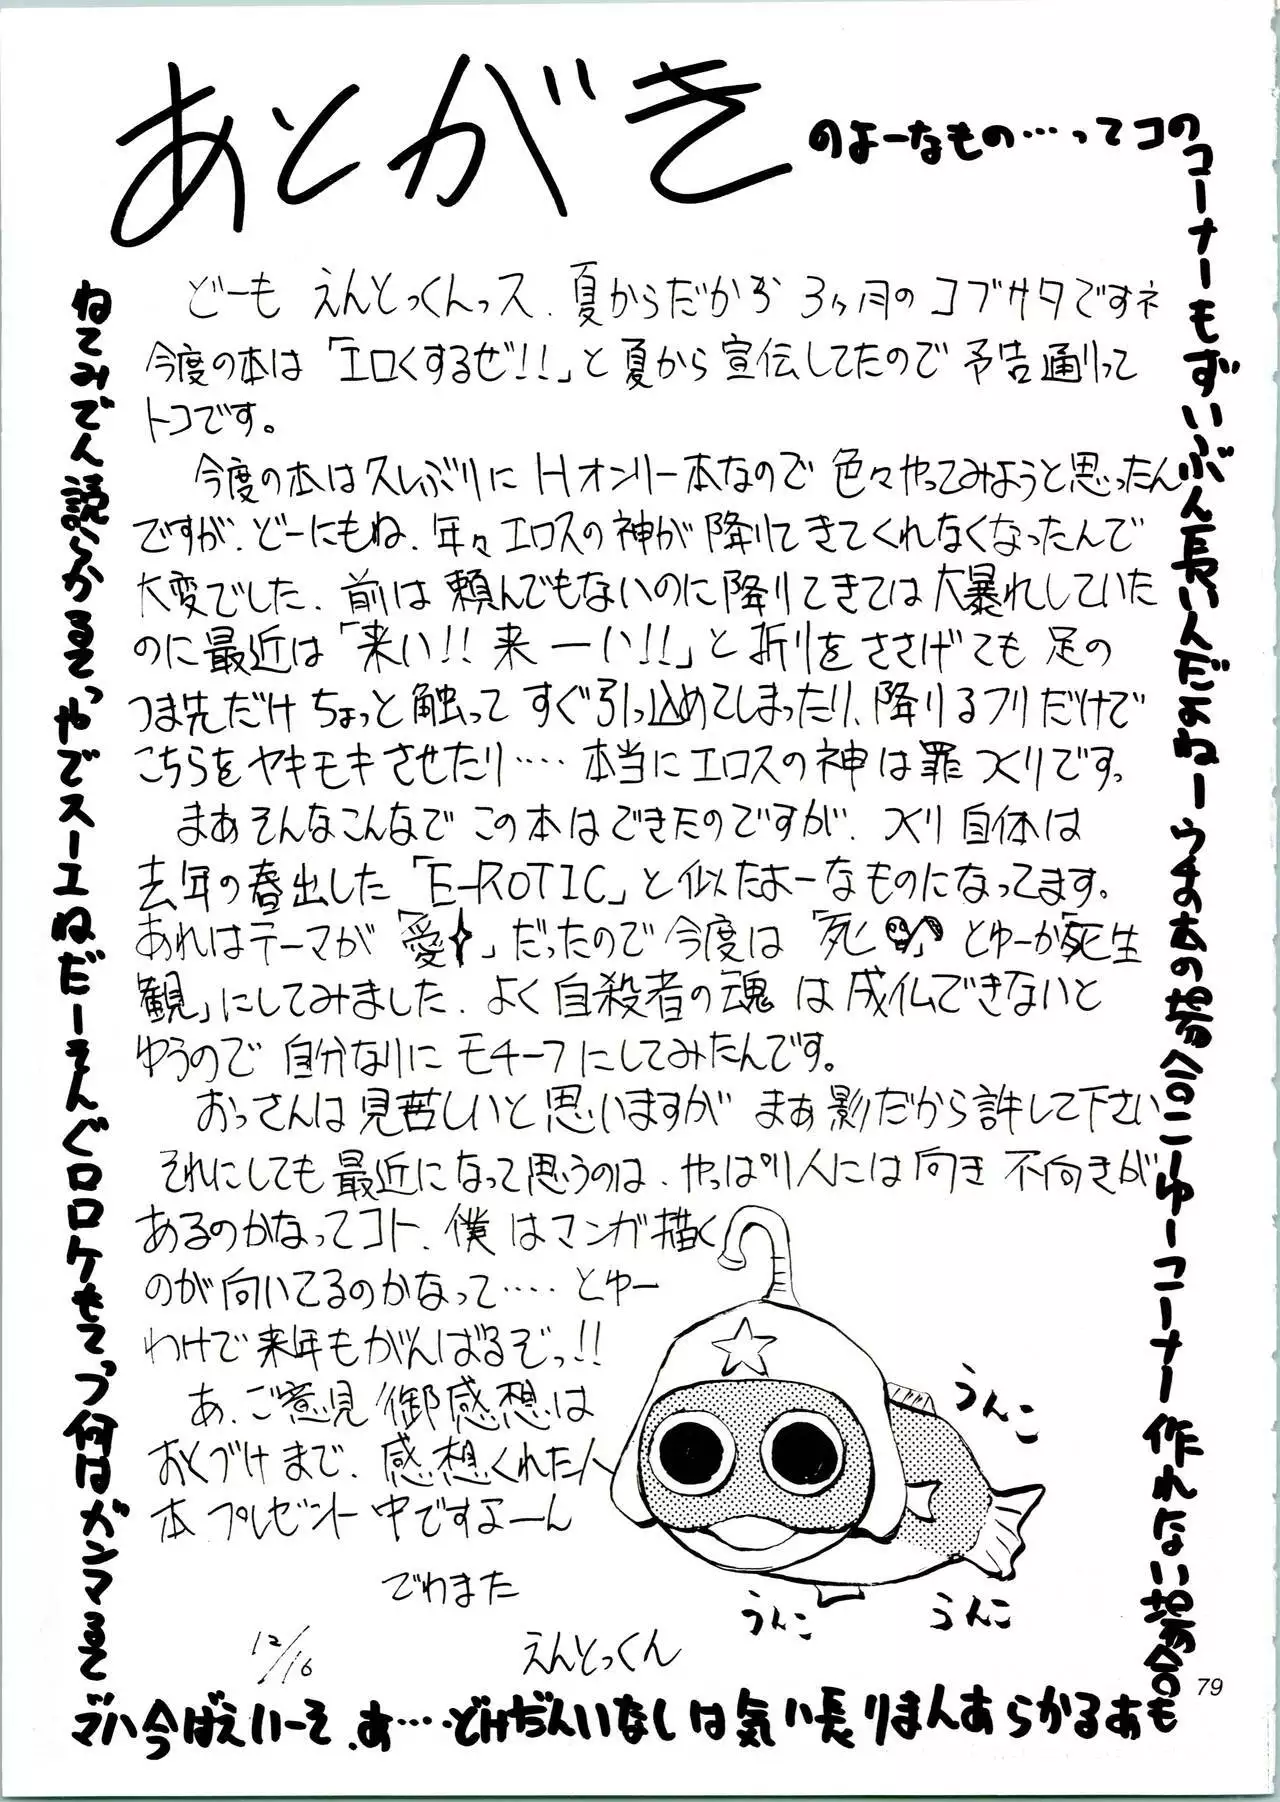 あとがき
のよーなもの…ってコの
コーナーもずいぶん長いんだよねーウチの本の場合こーゆーコーナー作れない場合も
あるからあんまり長い気はしないんだけど…. あ、そーいえば今ハマ
ってるマンガは何
どーも えんとっくんっス. 夏からだから 3ヶ月のゴブサタですネ
今度の本は「エロくするぜ!!」と夏から宣伝してたので 予告通りって
トコです。
今度の本は久しぶりに Hオンリー本なので 色々やってみようと思ったん
ですが. どーにもね. 年々エロスの神が降りてきてくれなくなったんで
大変でした. 前は頼んでもないのに降りてきては大暴れしていた
のに最近は「来い!! 来ーい!!」と祈りをささげても 足の
つま先だけ ちょっと触って すぐ引っ込めてしまったり、降りるフリだけで
こちらをヤキモキさせたり…. 本当にエロスの神は罪つくりです。
まあそんなこんなで この本はできたのですが. つくり自体は
去年の春出した「E-ROTIC」と似たよーなものになってます。
あれはテーマが「愛」だったので今度は「死」とゆーか「死生
観」にしてみました. よく自殺者の魂は成仏できないと
ゆうので 自分なりに モチーフにしてみたんです。
おっさんは見苦しいと思いますが まあ影だから許して下さい
それにしても最近になって思うのは. やっぱり人には向き不向きが
あるのかなってコト. 僕はマンガ描く
のが向いてるのかなって…. とゆー
わけで来年もがんばるぞっ!!
あ、ご意見 御感想は
おくづけまで. 感想くれた人
本プレゼント中ですよーん
でわまた
12/16 えんとっくん
うんこ
うんこ
うんこ
79